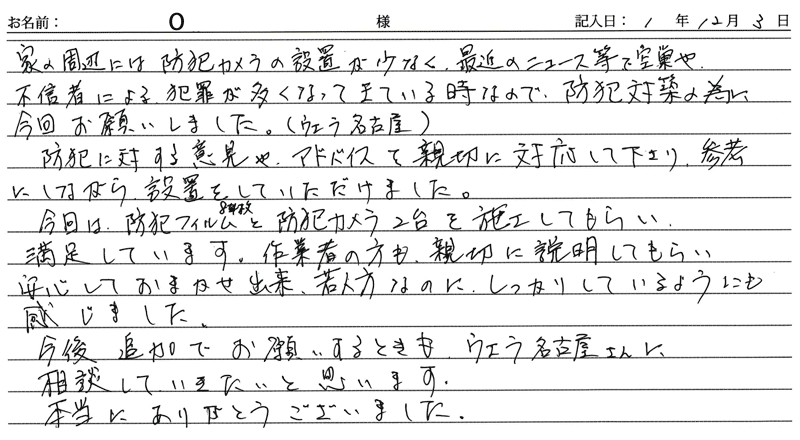 お名前： O 様 記入日： 1 年 12 月 3 日
家の周辺には防犯カメラの設置が少なく、最近のニュース等で空巣や、
不信者による犯罪が多くなって来ている時なので、防犯対策の為に
今回お願いしました。（ウェラ名古屋）
防犯に対する意見や、アドバイスを親切に対応して下さり、参考
にしながら設置をしていただけました。
今回は、防犯フィルム8枚と防犯カメラ2台を施工してもらい、
満足しています。作業者の方も、親切に説明してもらい
安心しておまかせ出来、若い方なのに、しっかりしているようにも
感じました。
今後追加でお願いするときも、ウェラ名古屋さんに
相談していきたいと思います。
本当にありがとうございました。